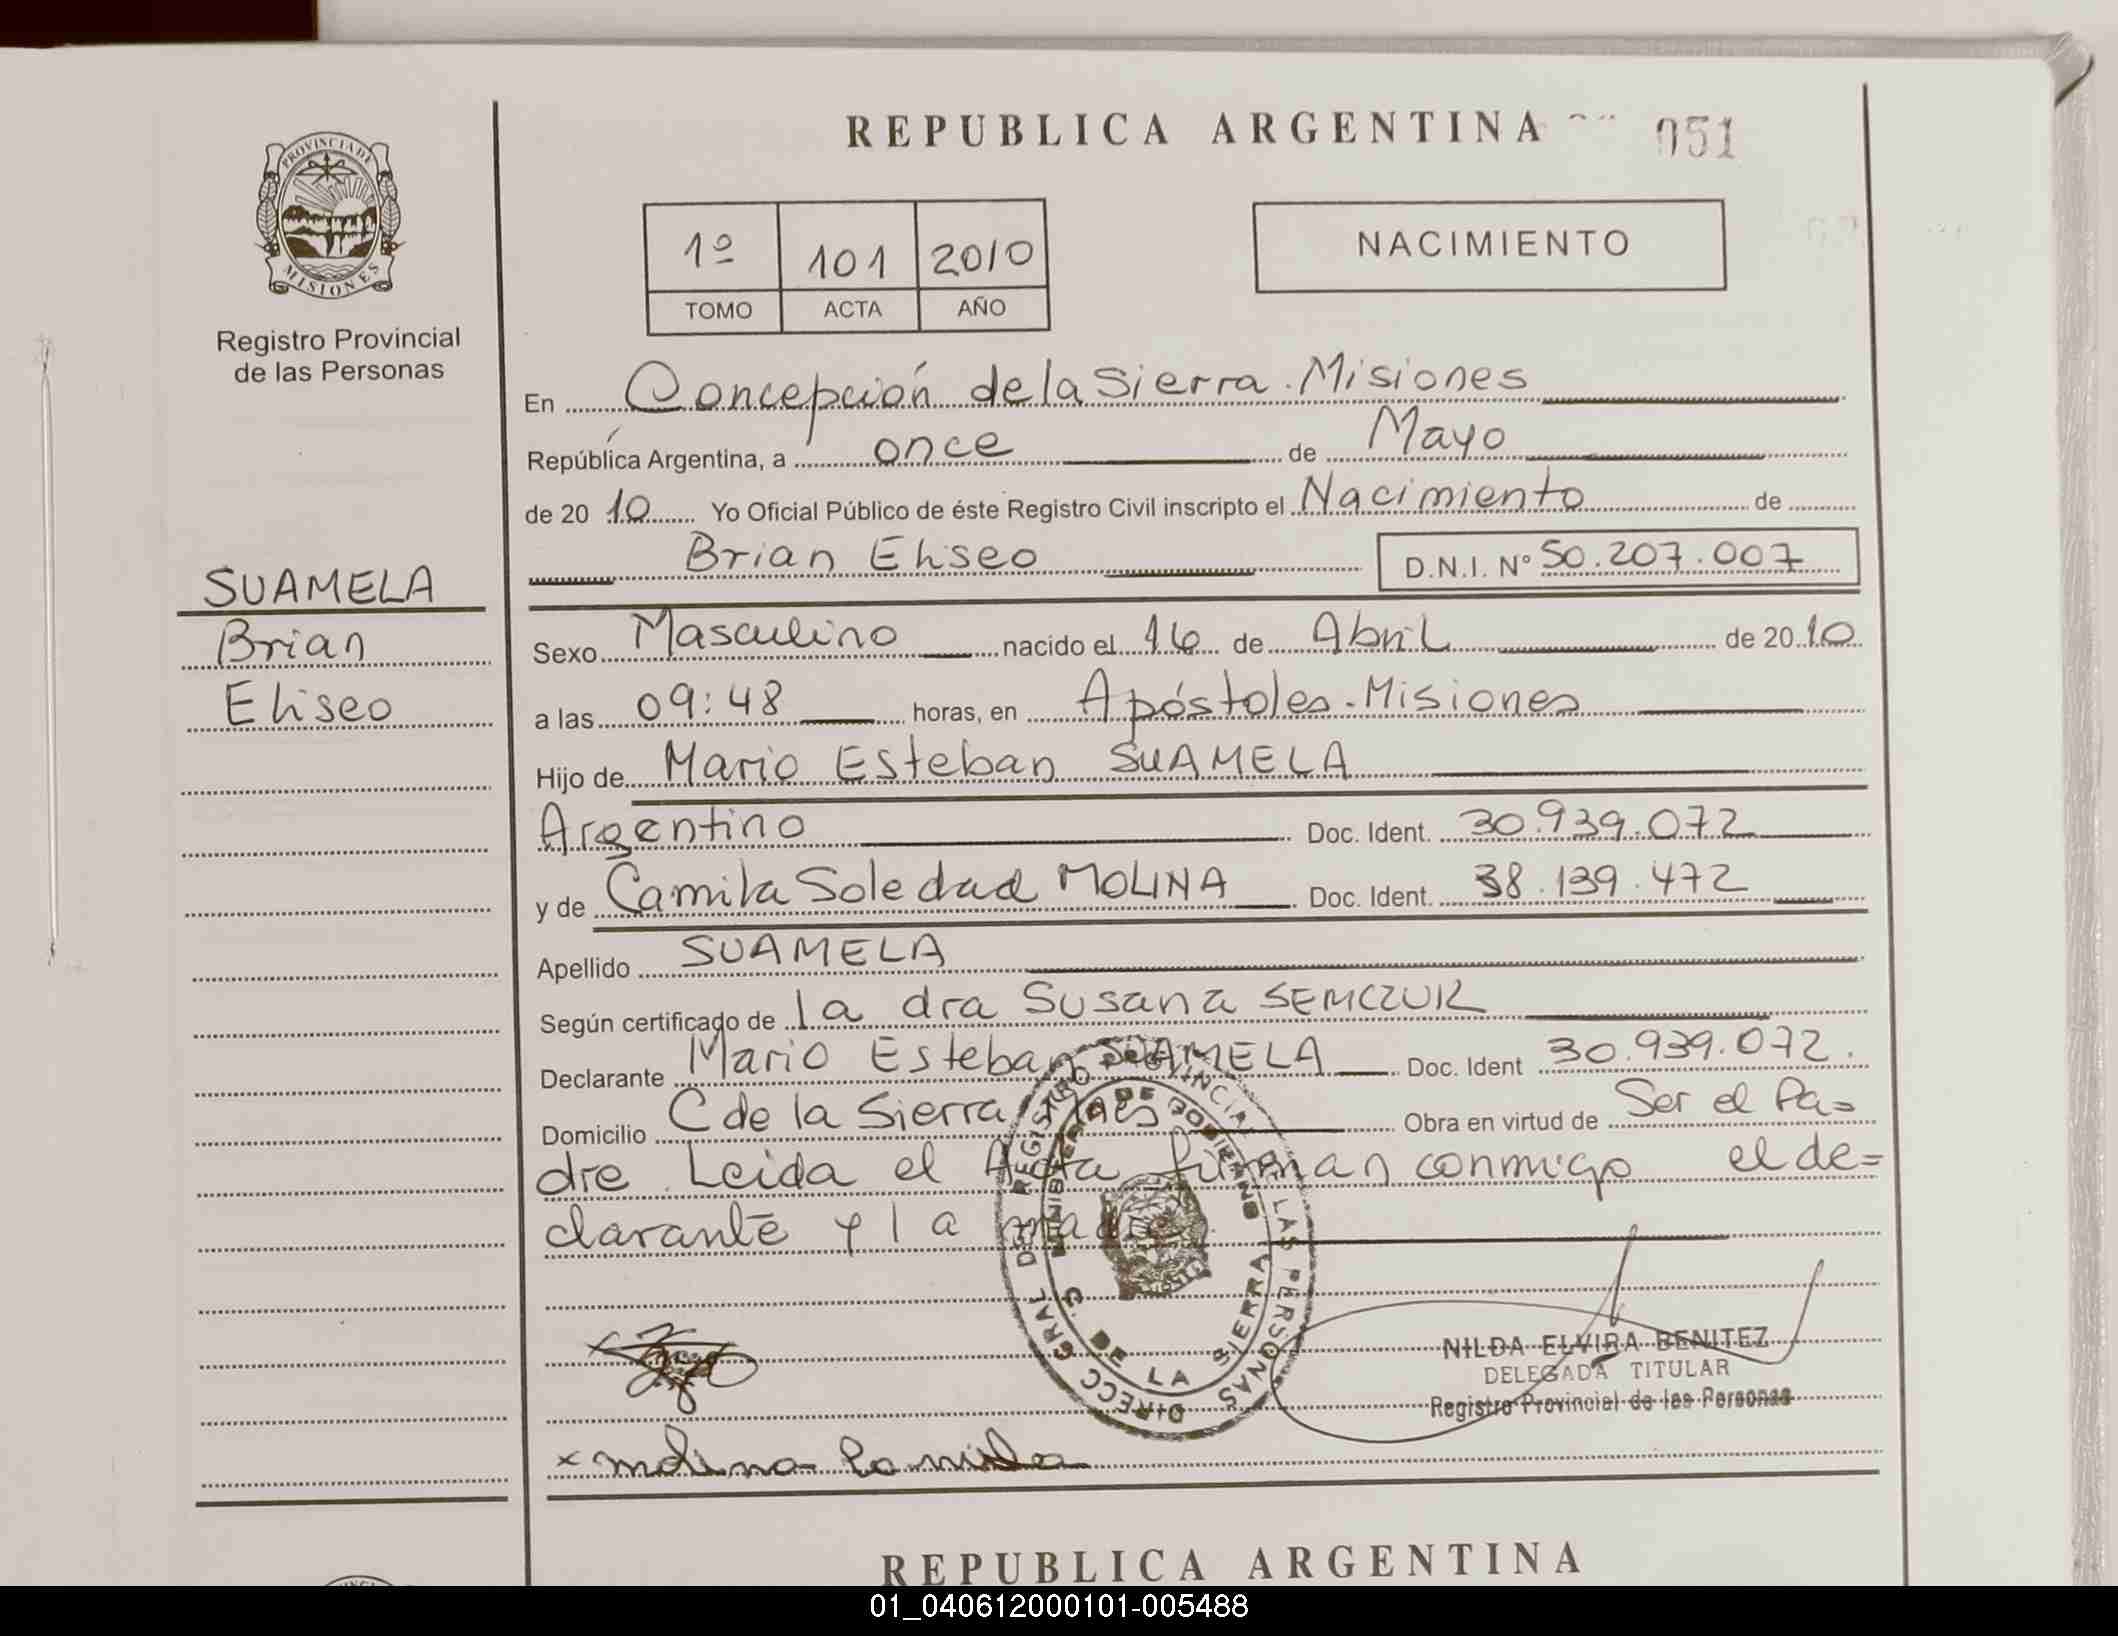 REPUBLICA ARGENTINA
051
PROVINCIA DE
MISIONES
Registro Provincial
de las Personas
1º 101 2010
TOMO ACTA AÑO
NACIMIENTO
En Concepción de la Sierra. Misiones
República Argentina, a once de Mayo
de 20 10 Yo Oficial Público de éste Registro Civil inscripto el Nacimiento de
Brian Eliseo D.N.I. Nº 50.207.007
SUAMELA
Brian
Eliseo
Sexo Masculino nacido el 16 de Abril de 20 10
a las 09:48 horas, en Apóstoles - Misiones
Hijo de Mario Esteban SUAMELA
Argentino Doc. Ident. 30.939.072
y de Camila Soledad MOLINA Doc. Ident. 38.139.472
Apellido SUAMELA
Según certificado de la dra Susana SEMCZUK
Declarante Mario Esteban SUAMELA Doc. Ident 30.939.072.
Domicilio C de la Sierra Mnes Obra en virtud de Ser el Pa=
dre. Leida el Acta firman conmigo el de=
clarante y la madre
DIRECC. GRAL DEL REGISTRO PROVINCIAL DE LAS PERSONAS
MINISTERIO DE GOBIERNO
C. DE LA SIERRA
NILDA ELVIRA BENITEZ
DELEGADA TITULAR
Registro Provincial de las Personas
x molina Camila
REPUBLICA ARGENTINA
01_040612000101-005488